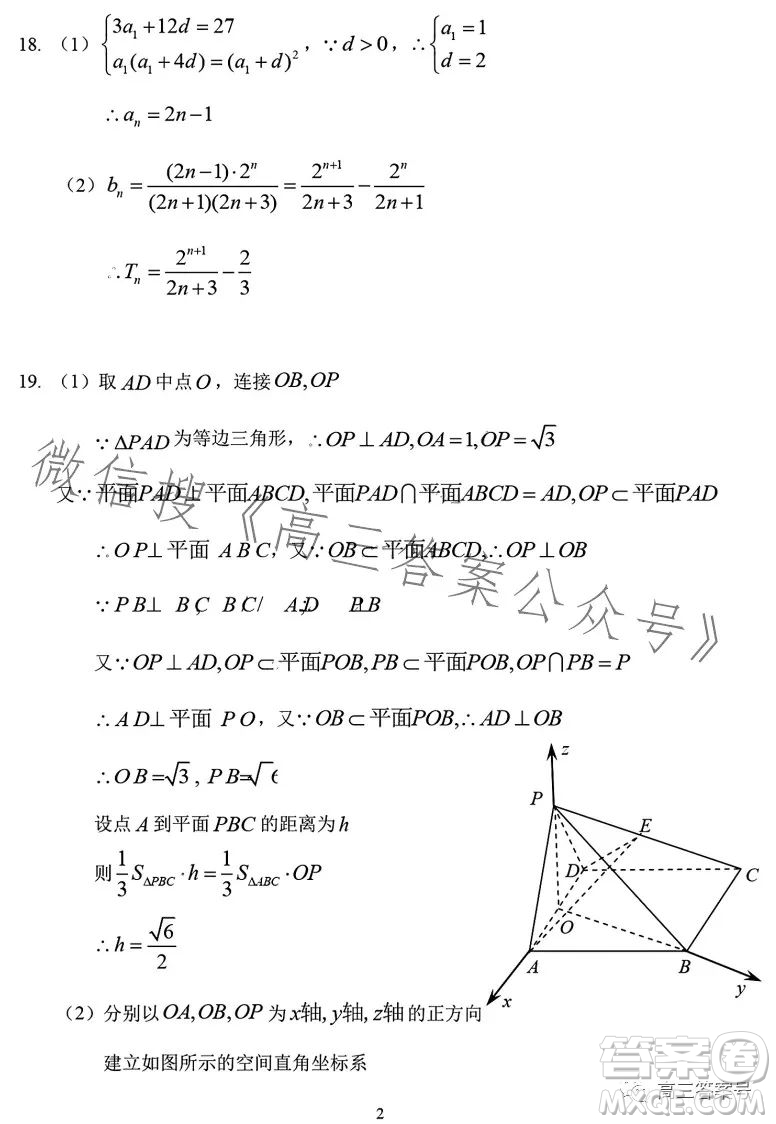 18. （1）{3a₁+12d=27
a₁(a₁+4d)=(a₁+d)²，∵d>0，∴{a₁=1
d=2
∴aₙ=2n−1
（2）bₙ=(2n−1)·2ⁿ/(2n+1)(2n+3)=2ⁿ⁺¹/2n+3−2ⁿ/2n+1
∴Tₙ=2ⁿ⁺¹/2n+3−2/3
19. （1）取AD中点O，连接OB,OP
∵ΔPAD为等边三角形，∴OP⊥AD,OA=1,OP=√3
又∵平面PAD⊥平面ABCD,平面PAD⋂平面ABCD=AD,OP⊂平面PAD
∴OP⊥平面 ABC，又∵OB⊂平面ABCD,∴OP⊥OB
∵PB⊥ BC, BC/ AD
又∵OP⊥AD,OP⊂平面POB,PB⊂平面POB,OP⋂PB=P
∴AD⊥平面 PO，又∵OB⊂平面POB,∴AD⊥OB
∴OB=√3, PB=√6
设点A到平面PBC的距离为h
则1/3 S△PBC·h=1/3 S△ABC·OP
∴h=√6/2
z
P
E
D
C
O
A
B
x
y
（2）分别以OA,OB,OP为x轴,y轴,z轴的正方向
建立如图所示的空间直角坐标系
2
微信搜《高三答案公众号》
答案圈
MXQE.COM
高三答案号